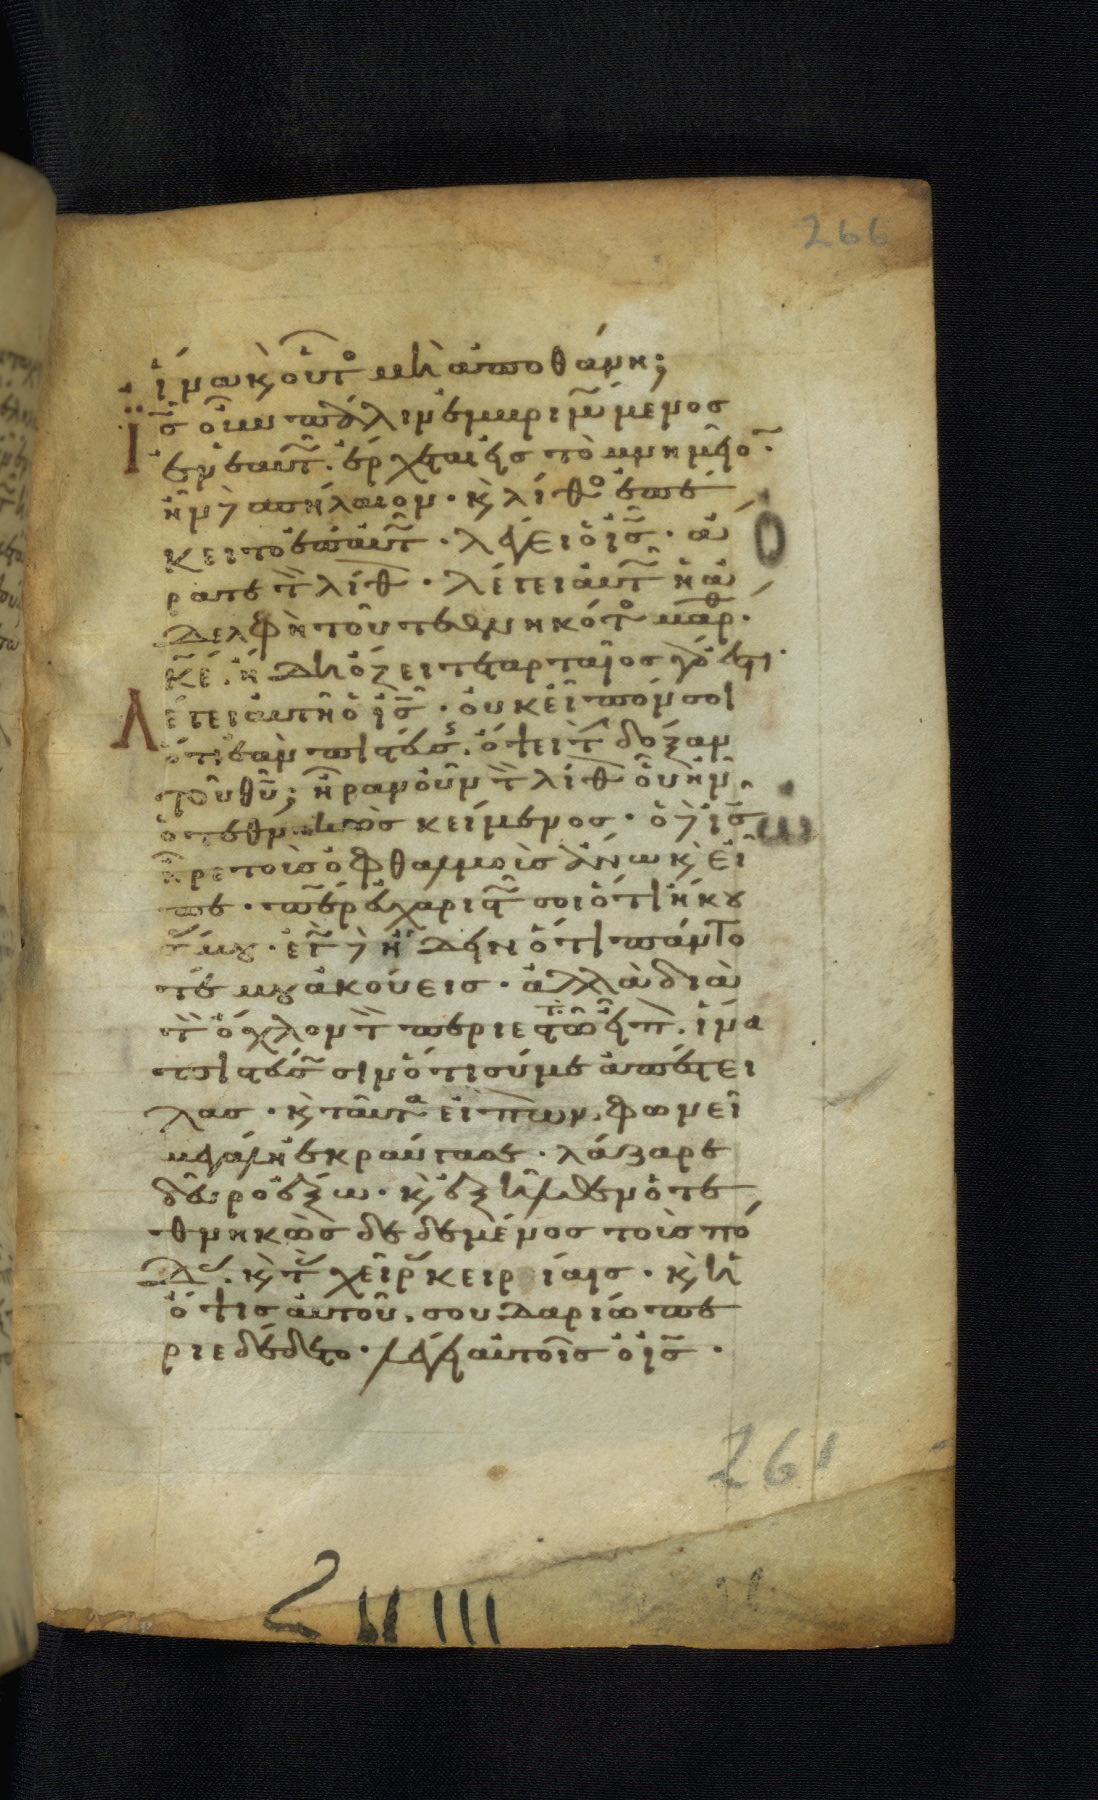 266
ἵνα κ(αὶ) οὗτο(ς) μὴ ἀποθάνη;
Ἰς οὖν πάλιν ἐμβριμώμενος
ἐν ἑαυτῶ. ἔρχεται εἰς τὸ μνημεῖο(ν).
ἦν δ(ὲ) σπήλαιον. κ(αὶ) λίθο(ς) ἐπέ
κειτο ἐπ' αὐτῶ. λέγει ὁ ἰς. ἄ
ρατε τ(ὸν) λίθ(ον). λέγει αὐτῶ ἡ ἀ
δελφὴ τοῦ τεθνηκότο(ς) μάρθ(α).
κε. ἤδη ὄζει τεταρταῖος γάρ ἐστι.
Λέγει αὐτῆ ὁ ἰς. οὐκ εἶπόν σοι
ὅτι ἐὰν πιστεύσ(ης). ὄψει τ(ὴν) δόξαν
τοῦ θυ; ἦραν οὖν τ(ὸν) λίθ(ον) οὗ ἦν
ὁ τεθνηκὼς κείμενος. ὁ δ(ὲ) ἰς
ἦρε τοὺς ὀφθαλμοὺς ἄνω κ(αὶ) εἶ
πε. περ εὐχαριστῶ σοι ὅτι ἤκου
σάς μου. ἐγὼ δ(ὲ) ἤδειν ὅτι πάντο
τέ μου ἀκούεις. ἀλλὰ διὰ
τ(ὸν) ὄχλον τ(ὸν) περιεστῶτα εἶπ(ον). ἵνα
πιστεύσωσιν ὅτι σύ με ἀπέστει
λας. κ(αὶ) ταῦτα εἰπὼν. φωνῆ
μεγάλη ἐκραύγασε. λάζαρε
δεῦρο ἔξω. κ(αὶ) ἐξῆλθεν ὁ τε
θνηκὼς δεδεμένος τοὺς πό
δας. κ(αὶ) τὰς χεῖρας κειρίαις. κ(αὶ) ἡ
ὄψις αὐτοῦ. σουδαρίω πε
ριεδέδετο. λέγει αὐτοῖς ὁ ἰς.
261